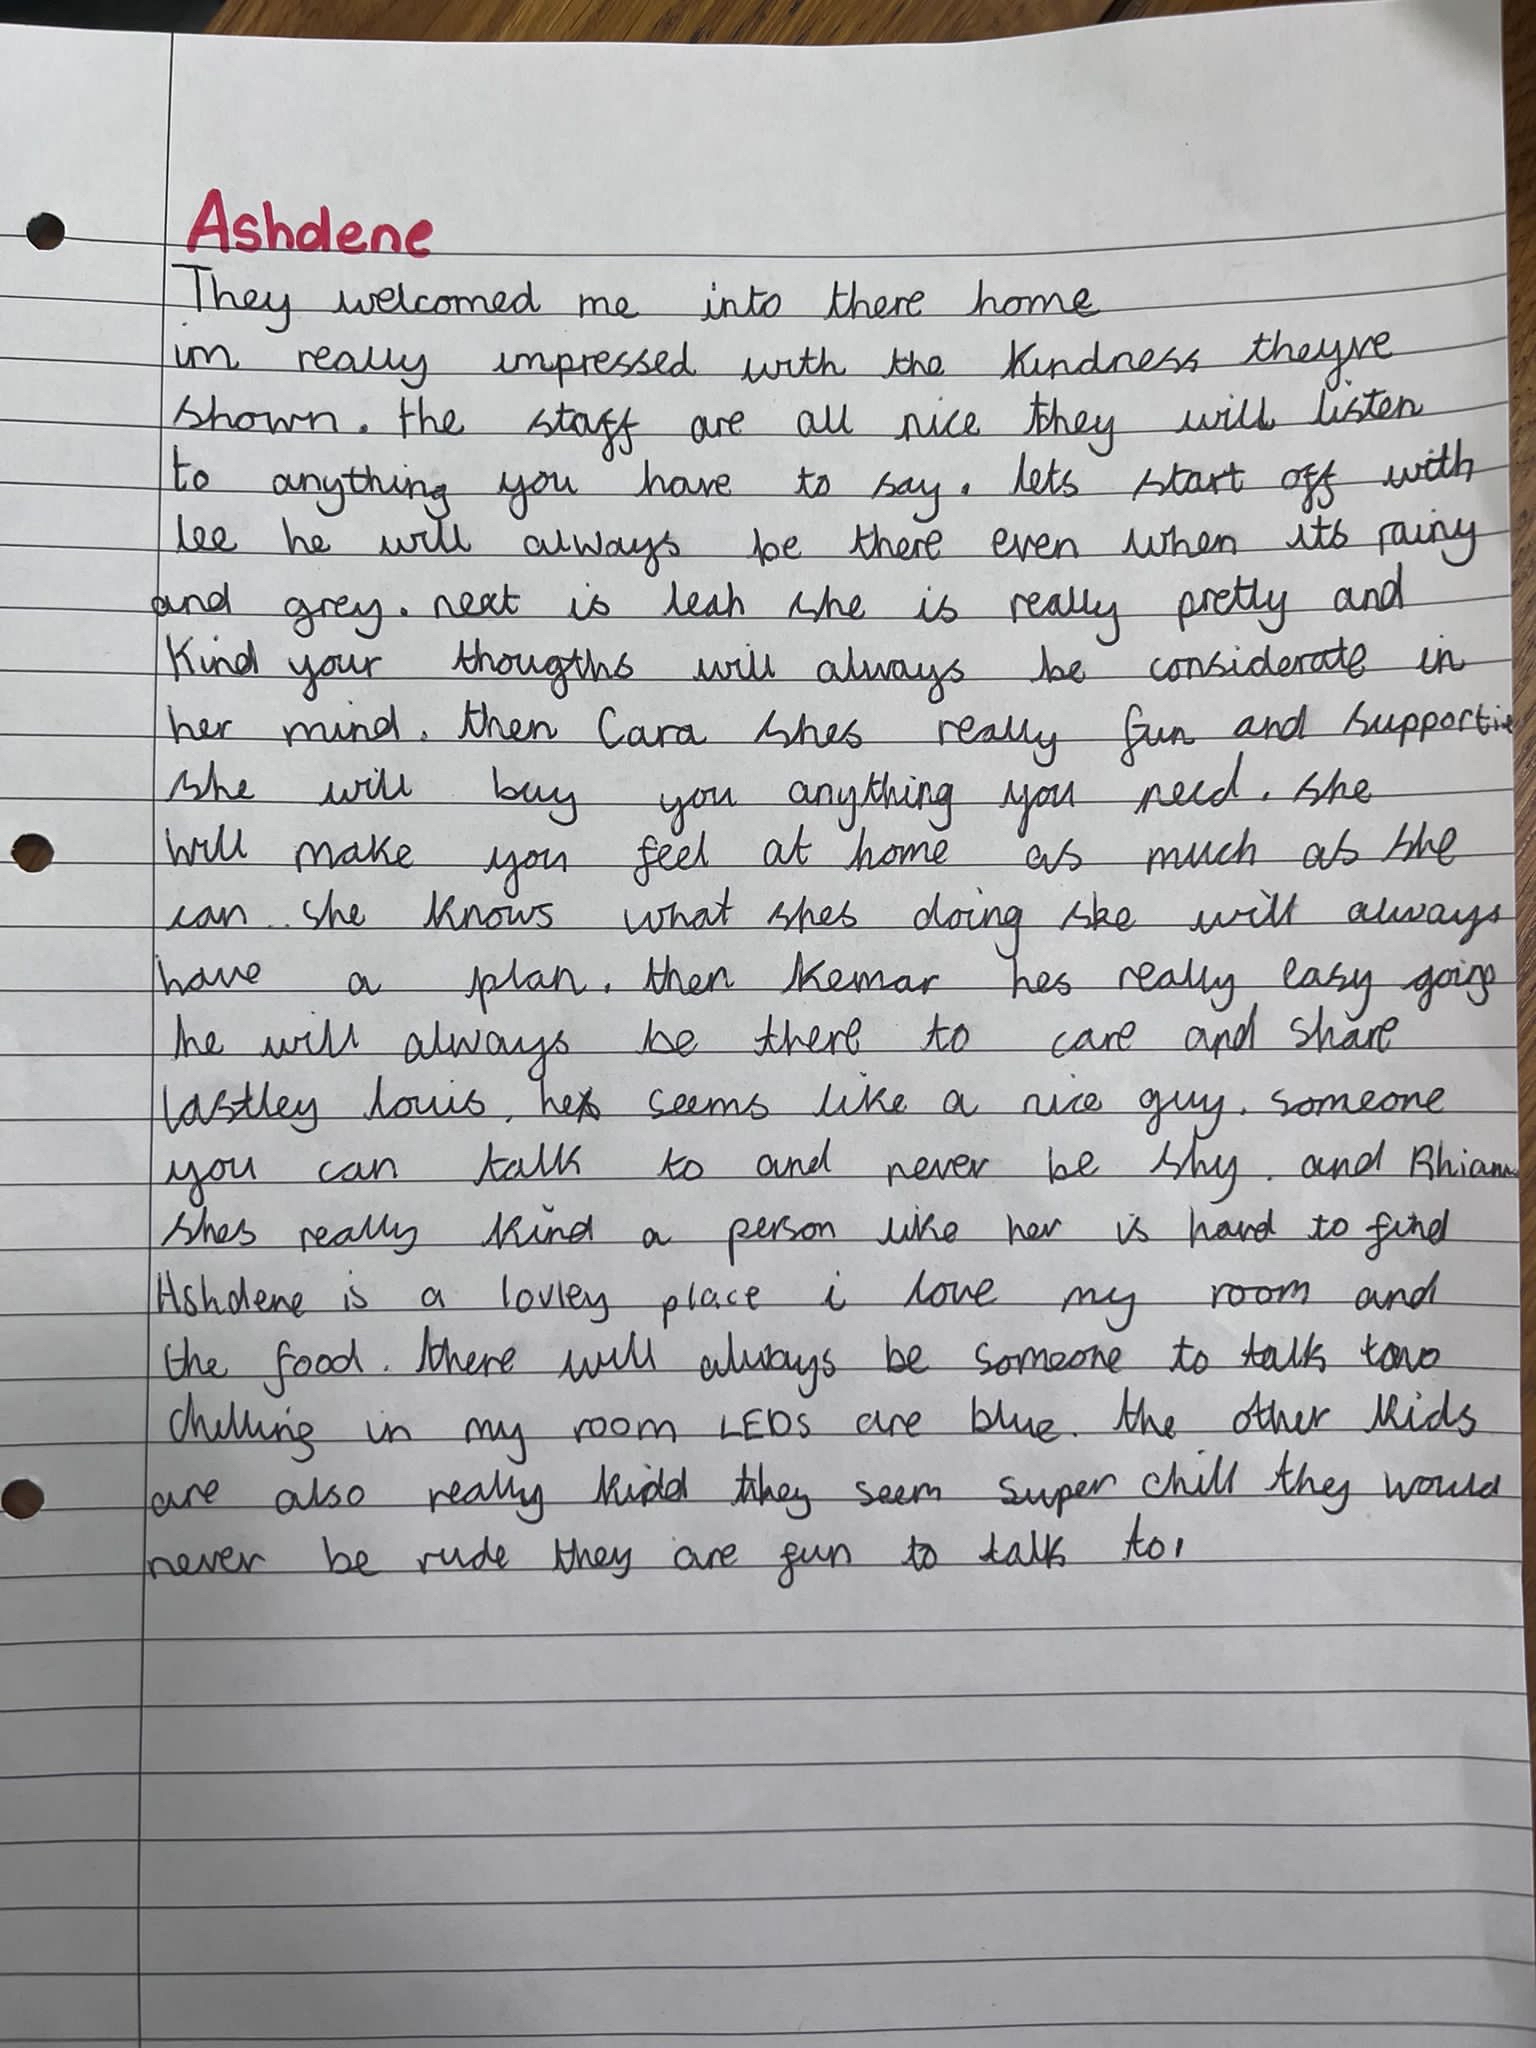 Ashdene
They welcomed me into there home
im really impressed with the kindness theyve
shown. the staff are all nice they will listen
to anything you have to say. lets start off with
lee he will always be there even when its rainy
and grey. next is leah she is really pretty and
kind your thougths will always be considerate in
her mind. then Cara shes really fun and supportive
she will buy you anything you need. she
will make you feel at home as much as she
can.. she knows what shes doing she will always
have a plan. then kemar hes really easy going
he will always be there to care and share
lastley louis, he seems like a nice guy. someone
you can talk to and never be shy. and
shes really kind a person like her is hard to find
Ashdene is a lovley place i love my room and
the food. there will always be someone to talk
chilling in my room LEDS are blue. the other kids
are also really kind they seem super chill they would
never be rude they are fun to talk to,